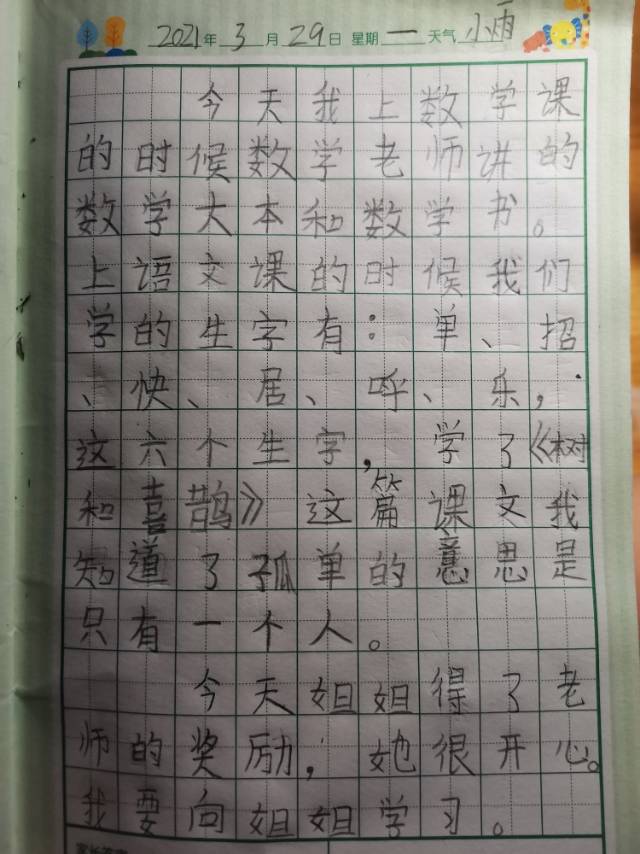 2021年3月29日 星期一 天气小雨
今天我上数学课
的时候数学老师讲的
数学大本和数学书。
上语文课的时候我们
学的生字有：单、招
、快、居、呼、乐，
这六个生字，学了《树
和喜鹊》这篇课文我
知道了孤单的意思是
只有一个人。
今天姐姐得了老
师的奖励，她很开心。
我要向姐姐学习。